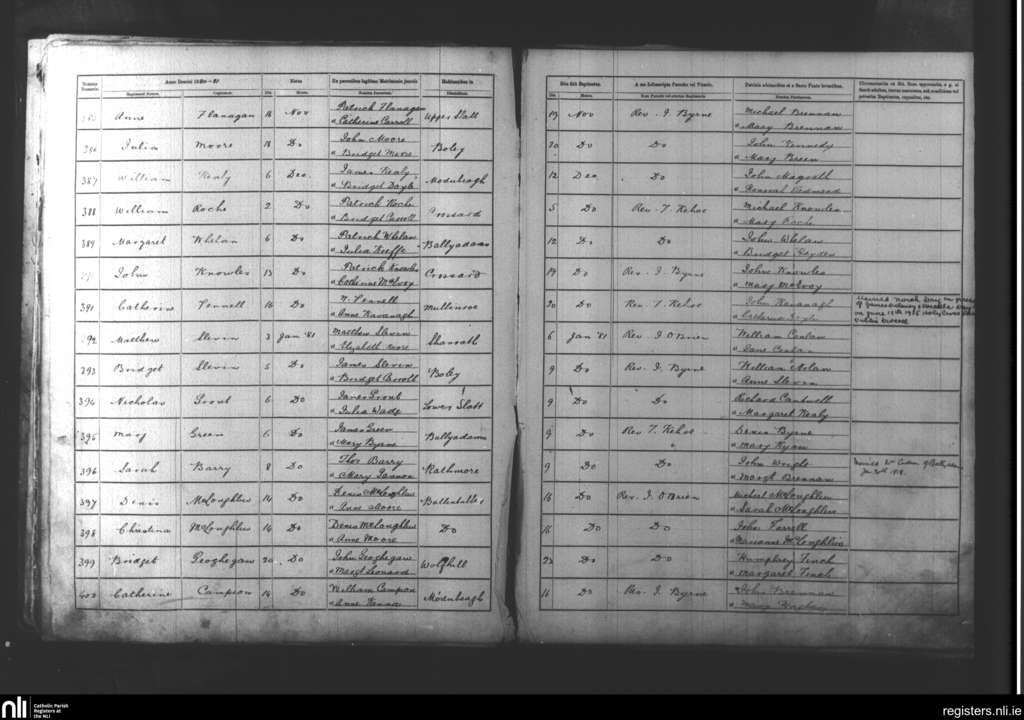 Anno Domini 1880-81
Natus
Ex parentibus legitimo Matrimonio junctis
Habitantibus in
Die
Mensis
Anne Flanagan 16 Nov Patrick Flanagan Upper Slatt 19 Nov Rev. J. Byrne Michael Brennan
" Catherine Carroll " Mary Brennan
Julia Moore 18 Do John Moore Boley 20 Do Do John Kennedy
" Bridget Moore " Mary Breen
387 William Kealy 6 Dec. James Kealy Modubeagh 12 Dec Do John Magrath
" Bridget Doyle
388 William Roche 2 Do Patrick Roche Crossard 5 Do Rev. T. Kehoe Michael Knowles
" Bridget Carroll " Mary Roche
389 Margaret Whelan 6 Do Patrick Whelan Ballyadams 12 Do Do John Whelan
" Julia Keeffe " Bridget Hayden
John Knowles 13 Do Patrick Knowles Crossard 19 Do Rev. J. Byrne John Knowles
" Catherine McEvoy " Mary McEvoy
391 Catherine Fennell 16 Do Fennell Mullinroe 20 Do Rev T Kehoe John Kavanagh
" Anne Kavanagh
392 Matthew Slevin 3 Jan '81 Matthew Slevin Shanrath 6 Jan '81 Rev. J O'Brien William Conlan
" Elizabeth Moore " Jane Conlan
393 Bridget Slevin 5 Do James Slevin Boley 9 Do Rev. J. Byrne William Nolan
" Bridget Carroll " Anne Slevin
394 Nicholas Prout 6 Do James Prout Lower Slatt 9 Do Do Richard Cantwell
" Julia Wade " Margaret Kealy
395 Mary Green 6 Do James Green Ballyadams 9 Do Rev T. Kehoe Denis Byrne
" Mary Byrne " Mary Ryan
396 Sarah Barry 8 Do Thos Barry Rathmore 9 Do Do John Wright
" Mary Gannon " Margt Brennan
397 Denis McLoughlin 14 Do Denis McLoughlin 16 Do Rev. J. O'Brien Michael McLoughlin
" Anne Moore " Sarah McLoughlin
398 Christina McLoughlin 14 Do Denis McLoughlin Do 16 Do Do John Farrell
" Anne Moore " Marianne McLoughlin
399 Bridget Geoghegan 20 Do John Geoghegan Wolfhill 23 Do Do Humphrey Finch
" Margt Leonard " Margaret Finch
400 Catherine Campion 14 Do William Campion Modubeagh 16 Do Rev. J. Byrne John Brennan
nli Catholic Parish
Registers at
the NLI
registers.nli.ie